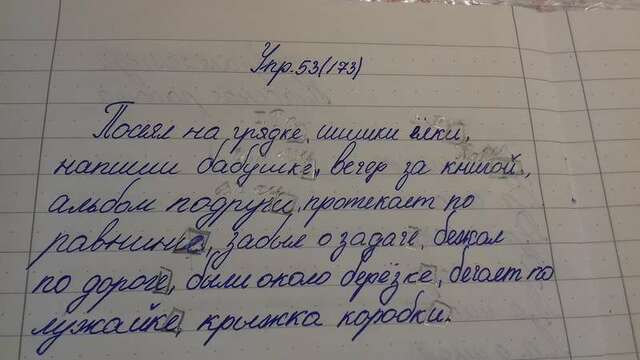 Упр. 53(173)
Посеял на грядке, шишки ёлки,
напиши бабушке, вечер за книгой,
альбом подруги, протекает по
равнине, забыл о задаче, бежал
по дороге, были около берёзке, бегает по
лужайке, крыжка коробки.